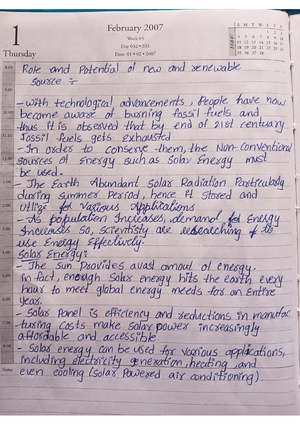 1
Thursday
February 2007
Week 05
Day 032 • 333
Date 01 • 02 • 2007
Role and Potential of new and renewable
Source :-
- with technological advancements, People have now
become aware of burning fossil fuels and
thus It is observed that by end of 21st centuary
fossil fuels gets exhausted
- In order to conserve them, the Non-conventional
Sources of Energy such as Solar Energy must
be used.
- The Earth Abundant Solar Radiation Particularly
during Summer Period, hence It Stored and
Utilize for Various Applications
- As population Increases, demand for Energy
Increases So, scientisty are reseaching to
use Energy Effectively.
Solar Energy:-
- The Sun Provides avast amout of energy.
In fact, enough Solar energy hits the earth every
hour to meet global energy needs for an Entire
Year.
- Solar Panel is efficiency and reductions in manufac
turing costs make Solar power increasingly
affordable and accessible.
- Solar energy can be used for various applications,
including electricity generation, heating, and
even cooling (Solar Powered air conditioning).